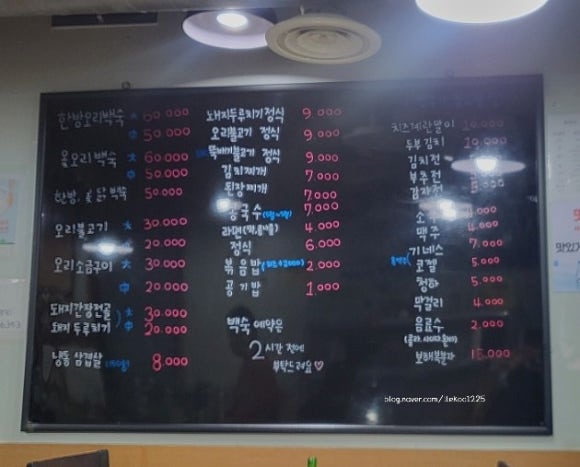 한방오리백숙 大 60.000
中 50.000
옻오리백숙 大 60.000
中 50.000
한방. 옻 닭 백숙 50.000
오리불고기 大 30.000
20.000
오리소금구이 大 30.000
中 20.000
돼지간장전골 大 30.000
돼지 두루치기 中 20.000
냉동 삼겹살 (150g) 8.000
돼지두루치기 정식 9.000
오리불고기 정식 9.000
뚝배기불고기 정식 9.000
김치찌개 7.000
된장찌개 7.000
콩국수 7.000
라면 4.000
정식 6.000
볶음밥 2.000
공기밥 1.000
백숙 예약은
2시간 전에
부탁드려요♡
치즈계란말이 10.000
두부김치 10.000
김치전
부추전
감자전 5.000
소주 4.000
맥주 4.000
기네스 7.000
코젤 5.000
청하 5.000
막걸리 4.000
음료수 2.000
(콜라.사이다.환타)
보해복분자 15.000
blog.naver.com/